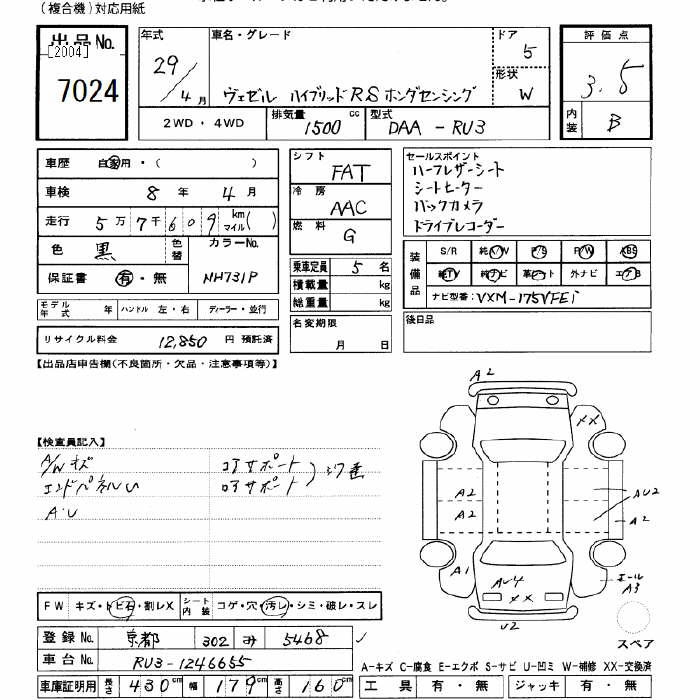 (複合機)対応用紙
出品No.
[2004]
7024
年式
29/4月
車名・グレード
ヴェゼル ハイブリッドRSホンダセンシング
ドア
5
形状
W
評価点
3.5
内装
B
2WD・4WD
排気量
1500 cc
型式
DAA-RU3
車歴 自家用・( )
車検 8年 4月
走行 5万7千609 km マイル( )
色 黒 色替 カラーNo.
保証書 有・無 NH731P
モデル年式 年 ハンドル 左・右 ディーラー・並行
リサイクル料金 12,850 円 預託済
シフト FAT
冷房 AAC
燃料 G
乗車定員 5名
積載量 kg
総重量 kg
名変期限
月 日
セールスポイント
ハーフレザーシート
シートヒーター
バックカメラ
ドライブレコーダー
装備品
S/R 純A/W P/S P/W ABS
純TV 純ナビ 革シート 外ナビ エアB
ナビ型番: VXM-175VFEi
後日品
【出品店申告欄(不良箇所・欠品・注意事項等)】
【検査員記入】
A/Wキズ
エンドパネルU
A・U
コアサポート
ロアサポート
A2
XX
A2
A2
AU2
A2
A1
AU4
XX
U2
エール
A3
スペア
FW キズ・トビ石・割レX シート内装 コゲ・穴・汚レ・シミ・破レ・スレ
登録No. 京都 302 み 5468
車台No. RU3-1246655
車庫証明用 長さ 430cm 幅 179cm 高さ 160cm
A-キズ C-腐食 E-エクボ S-サビ U-凹ミ W-補修 XX-交換済
工具 有・無 ジャッキ 有・無